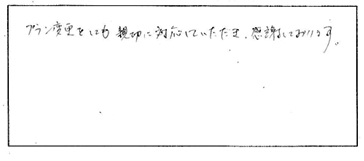 プラン変更をにも親切に対応していただき、感謝しております。